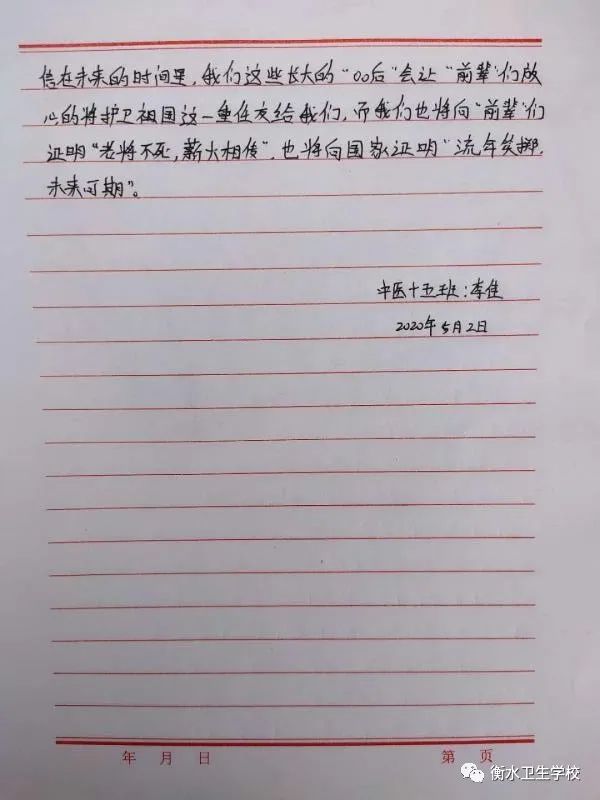 信在未来的时间里，我们这些长大的“00后”会让“前辈”们放
心的将护卫祖国这一重任交给我们，而我们也将向“前辈”们
证明“老将不死，薪火相传”，也将向国家证明“流年笑掷，
未来可期”。
中医十五班：李佳
2020年5月2日
年 月 日 第 页
衡水卫生学校